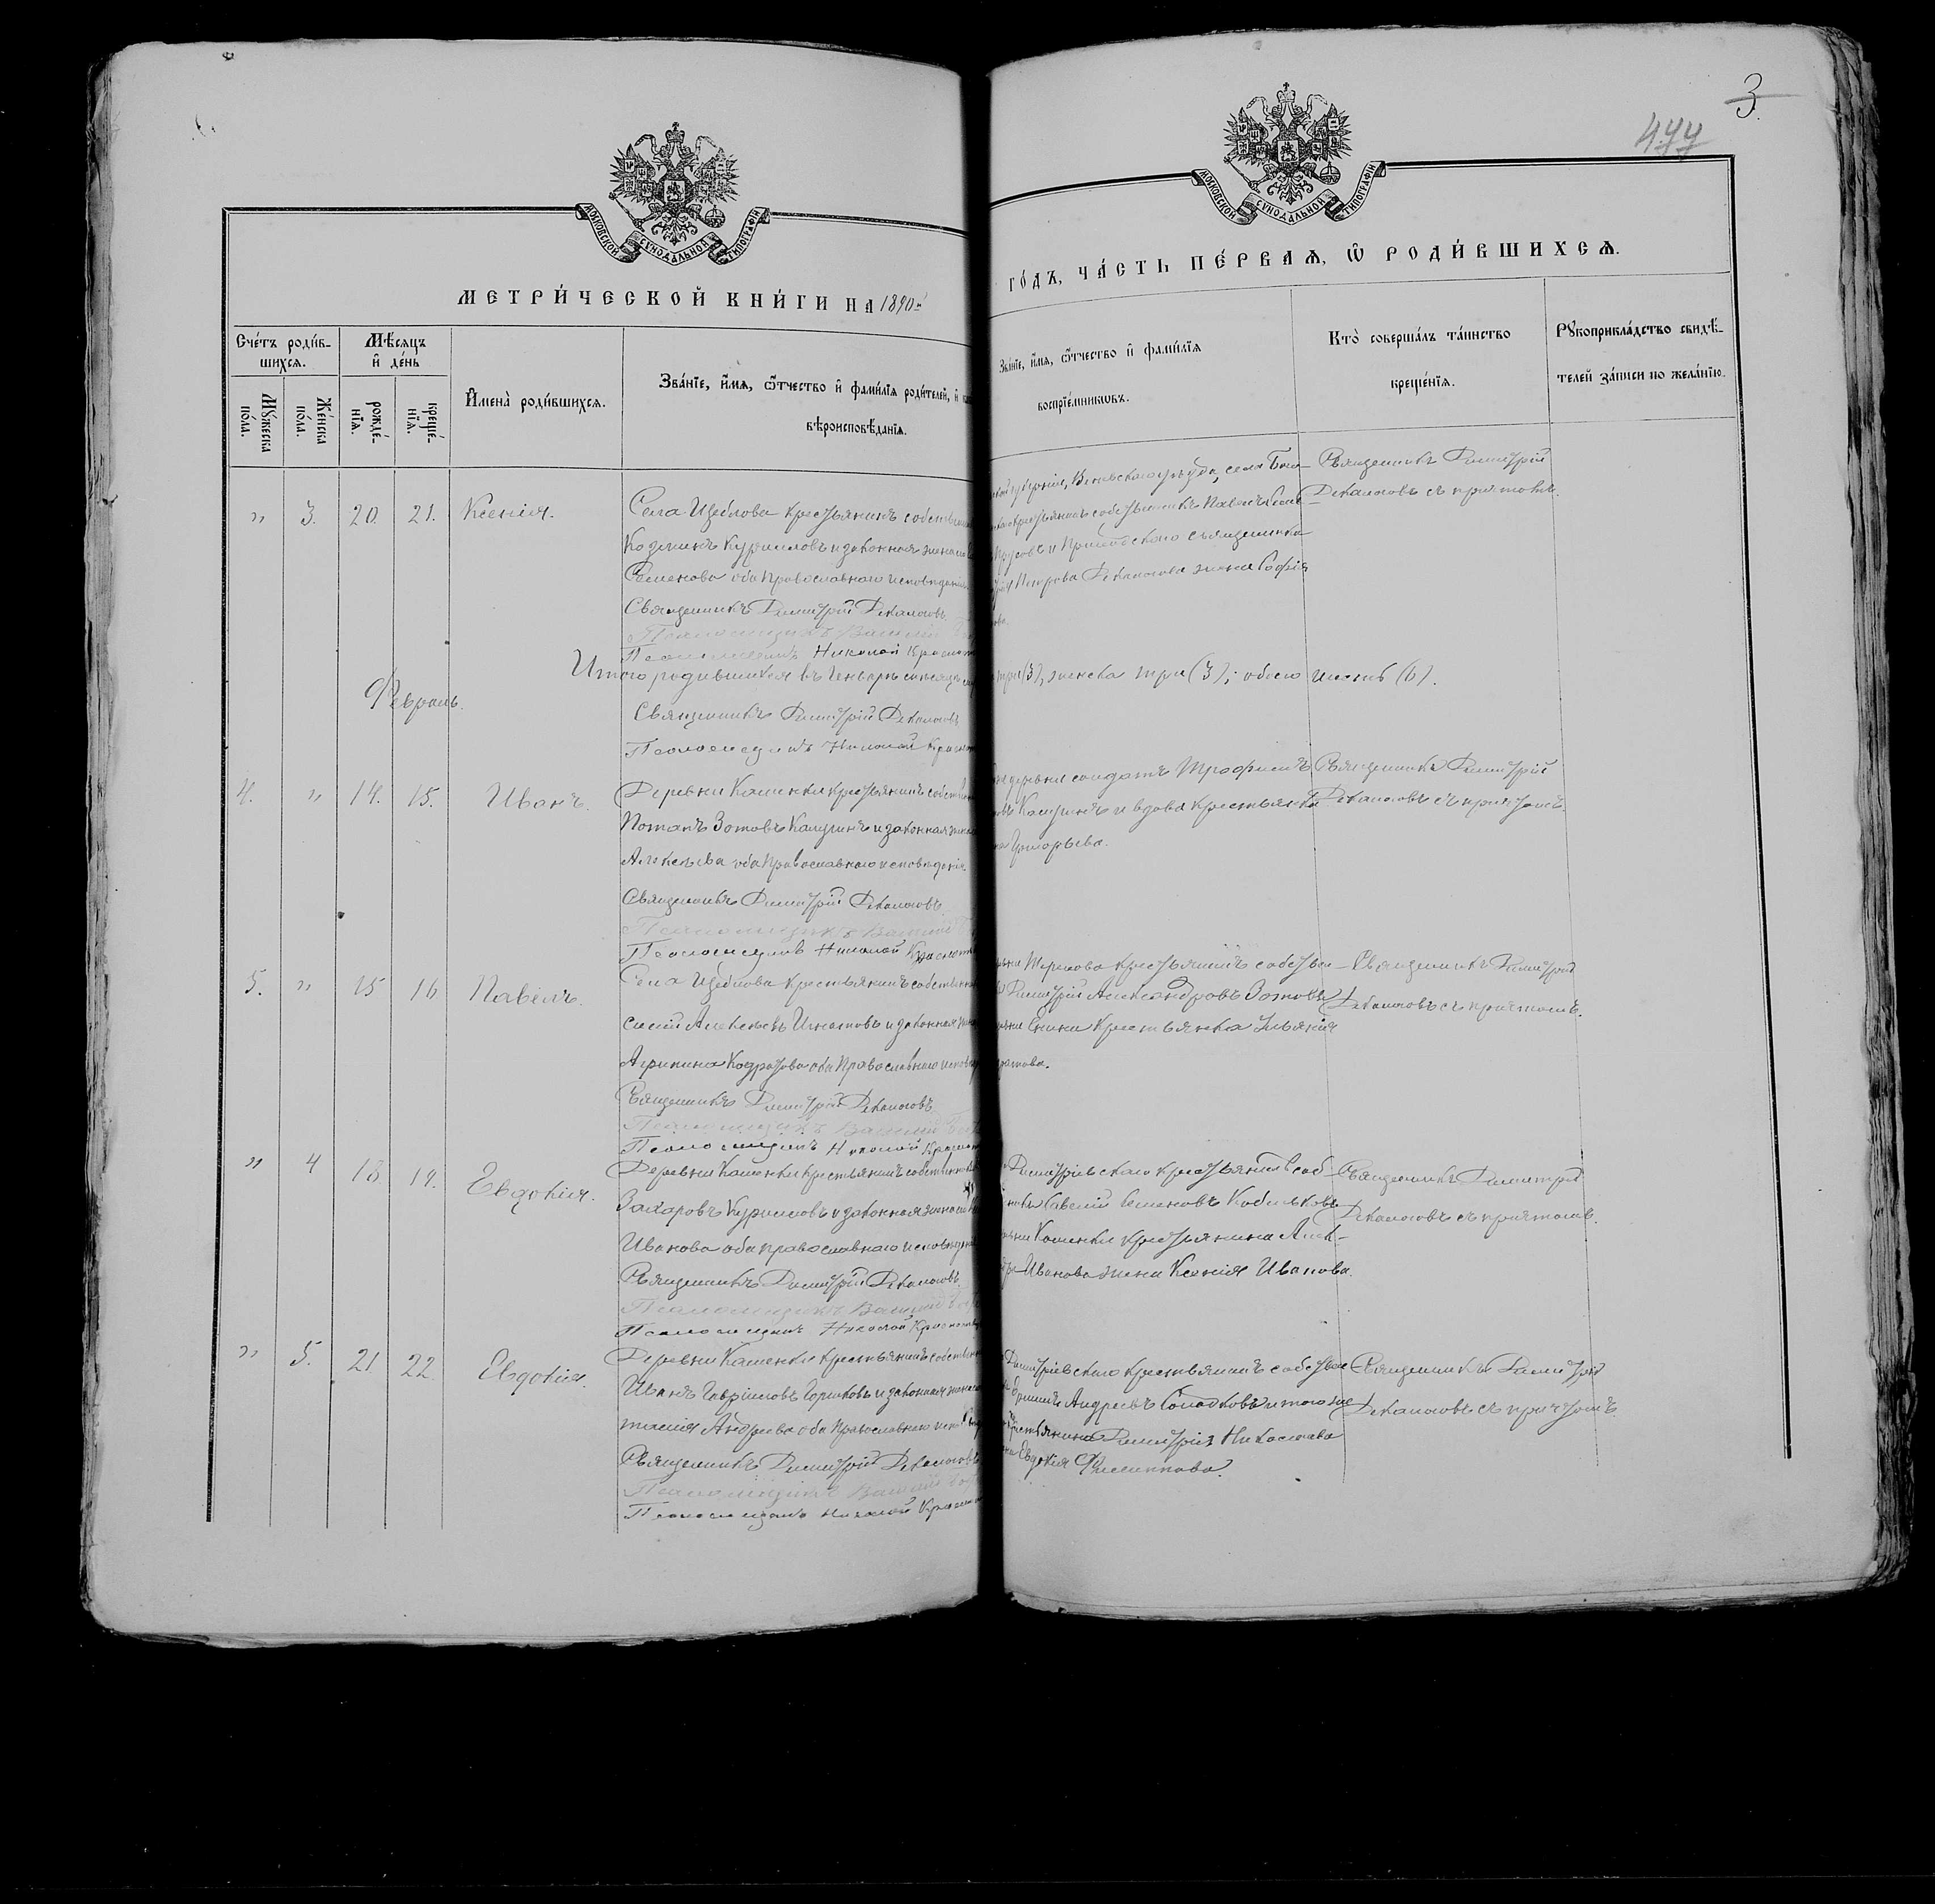 3.
477
МОСКОВСКОЙ СѴНОДАЛЬНОЙ ТИПОГРАФІИ
МОСКОВСКОЙ СѴНОДАЛЬНОЙ ТИПОГРАФІИ
МЕТРИ́ЧЕСКОЙ КНИ́ГИ НА 1890й
ГО́ДЪ, ЧА́СТЬ ПЕ́РВАѦ, Ѿ РОДИ́ВШИХСѦ.
Сче́тъ роди́в-
шихсѧ.
Мꙋ́жеска по́ла.
Же́нска по́ла.
Мѣ́сѧцъ и҆ де́нь
рожде́-
нїѧ.
креще́-
нїѧ.
И҆мена̀ роди́вшихсѧ.
Зва́нїе, и҆́мѧ, ѻ҆́тчество и҆ фами́лїѧ роди́телей, и҆
вѣроисповѣ́данїѧ.
Зва́нїе, и҆́мѧ, ѻ҆́тчество и҆ фами́лїѧ
воспрїе́мникѡвъ.
Кто̀ соверша́лъ та́инство
креще́нїѧ.
Рꙋкоприкла́дство свидѣ́-
телей за́писи по жела́нїю.
" 3. 20. 21. Ксенія.
Села Щеблова крестьянинъ собственн
Козминъ Курилловъ и законная жена
Семенова оба Православнаго исповѣданія
Священникъ Димитрій Декалоговъ
Псаломщикъ Василій
Псаломщикъ Николай
губерніи, Веневскаго уѣзда, села
крестьянинъ собственникъ Павелъ
и Приходскаго священника
Петрова Декалогова жена Софія
Священникъ Димитрій
Декалоговъ съ причтомъ.
Итого родившихся въ Генварѣ мѣсяцѣ
три (3), женска три (3); обоего шесть (6).
Февраль.
Священникъ Димитрій Декалоговъ
Псаломщикъ Николай
4. " 14. 15. Иванъ.
Деревни Каменки крестьянинъ собствен
Потапъ Зотовъ Кашинъ и законная жена
Алексѣева оба Православнаго исповѣданія.
Священникъ Димитрій Декалоговъ.
Псаломщикъ Василій
Псаломщикъ Николай
деревни солдатъ Трофимъ
Кашинъ и вдова крестьянка
Григорьева.
Священникъ Димитрій
Декалоговъ съ причтомъ.
5. " 15 16 Павелъ.
Села Щеблова крестьянинъ собственн
Алексѣевъ Игнатовъ и законная жена
Агрипина Кодратова оба Православнаго исповѣд
Священникъ Димитрій Декалоговъ.
Псаломщикъ Василій
Псаломщикъ Николай
Терехова крестьянинъ собствен
Димитрій Александровъ Зотовъ
крестьянка
Священникъ Димитрій
Декалоговъ съ причтомъ.
" 4 18 19. Евдокія.
Деревни Каменки крестьянинъ собственн
Захаровъ Курилловъ и законная жена
Иванова оба православнаго исповѣдан
Священникъ Димитрій Декалоговъ.
Псаломщикъ Василій
Псаломщикъ Николай
Димитріевскаго крестьянинъ соб-
Савелій Семеновъ Кобыльковъ
Каменки крестьянина Алек-
Иванова жена Ксенія Иванова.
Священникъ Димитрій
Декалоговъ съ причтомъ.
" 5. 21. 22. Евдокія.
Деревни Каменки крестьянинъ собственн
Иванъ Гавриловъ Горшковъ и законная жена
Андреева оба Православнаго испов
Священникъ Димитрій Декалоговъ
Псаломщикъ Василій
Псаломщикъ Николай
Димитріевскаго крестьянинъ собствен
Андреевъ Солодковъ и того же
крестьянина Димитрія Николаева
Евдокія Филиппова.
Священникъ Димитрій
Декалоговъ съ причтомъ